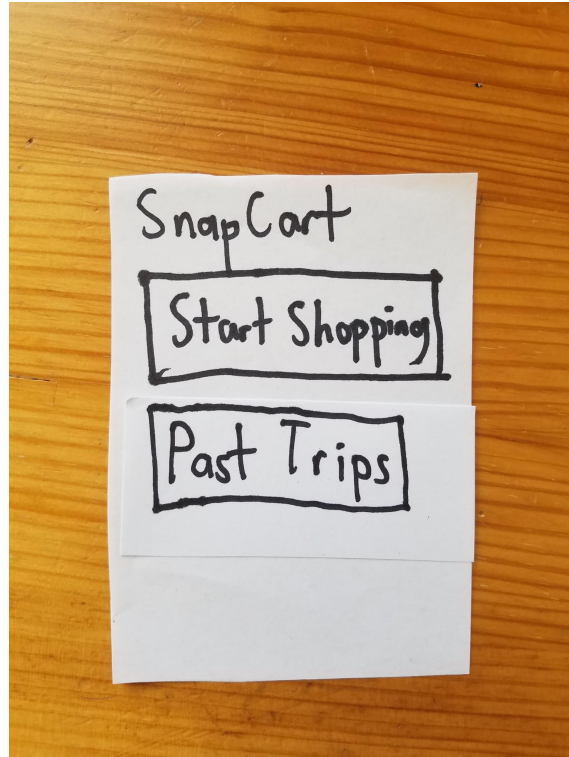 SnapCart
Start Shopping
Past Trips